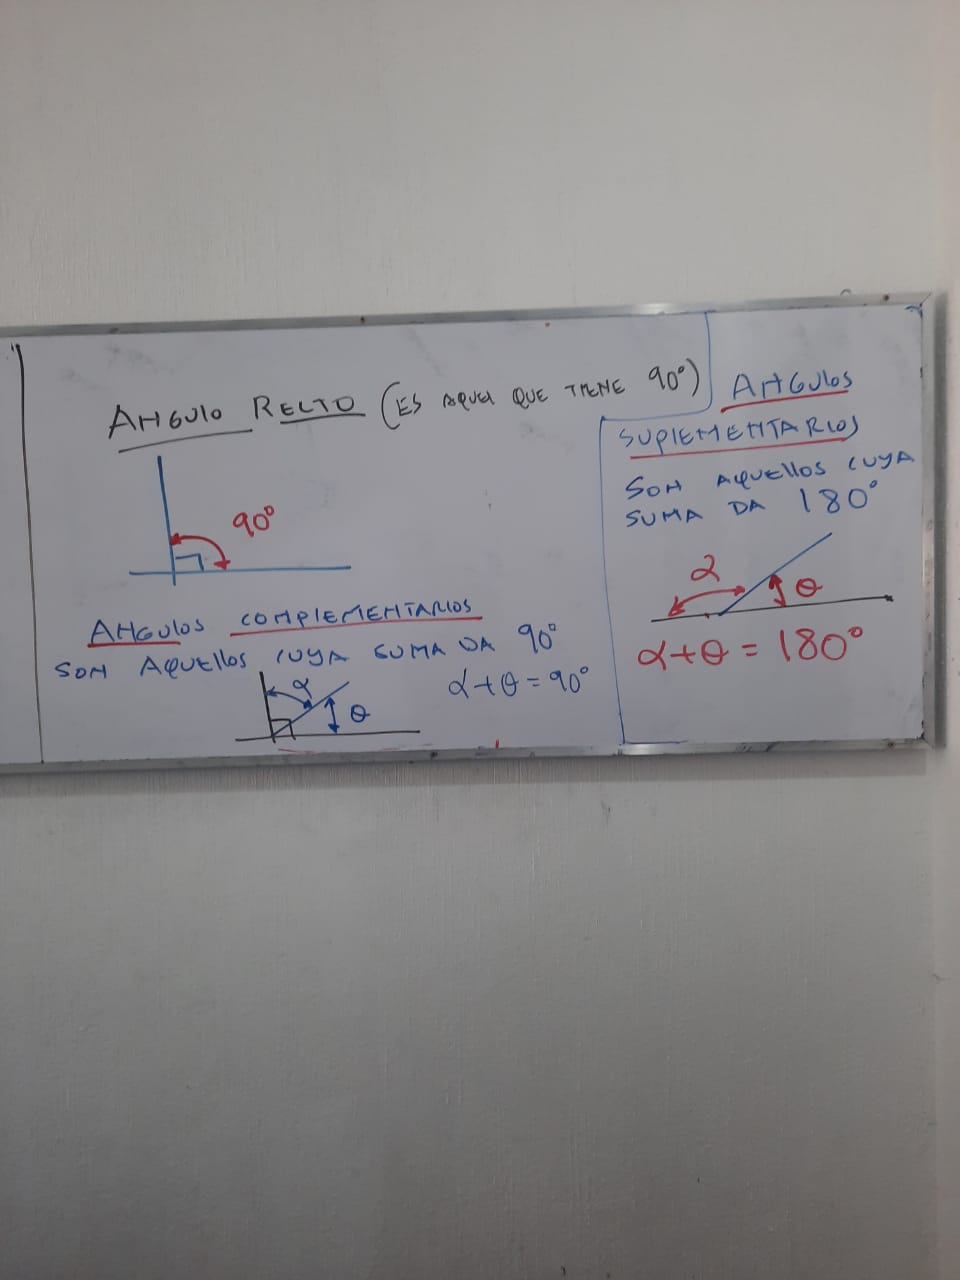 ANGULO RECTO (ES AQUEL QUE TIENE 90°)
90°
ANGULOS COMPLEMENTARIOS
SON AQUELLOS CUYA SUMA DA 90°
α
θ
α+θ=90°
ANGULOS
SUPLEMENTARIOS
SON AQUELLOS CUYA
SUMA DA 180°
α
θ
α+θ=180°